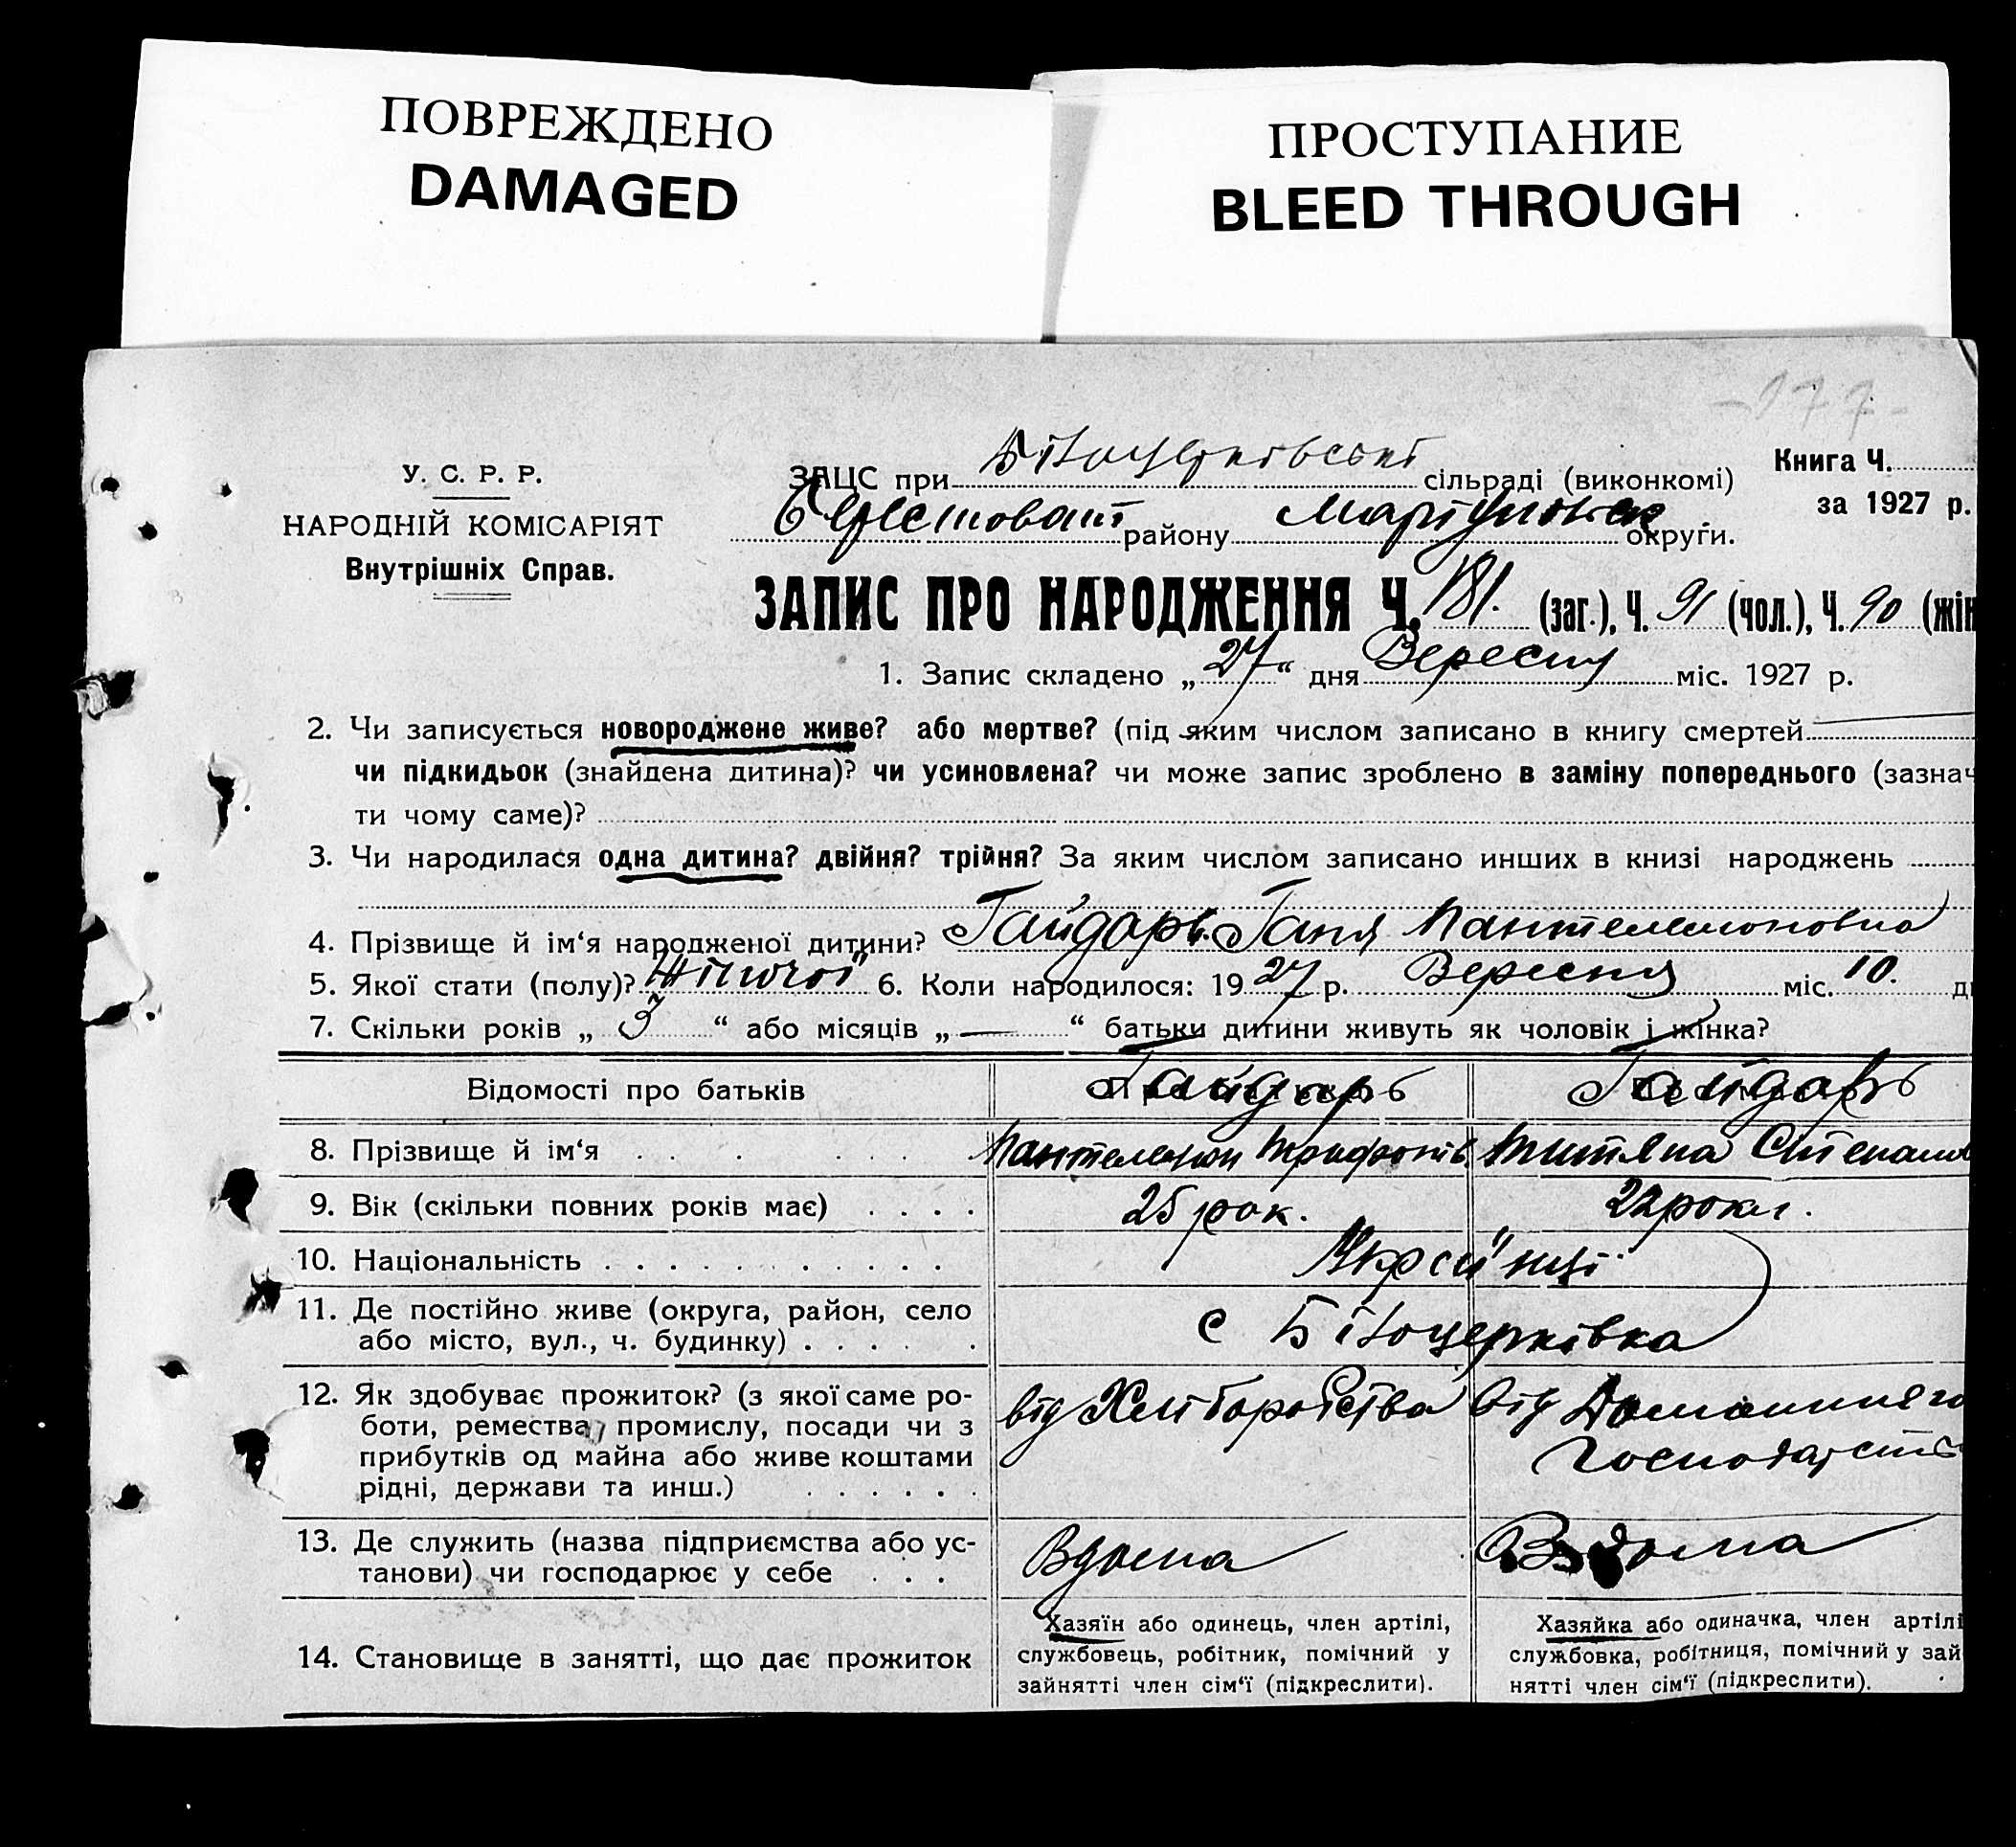 ПОВРЕЖДЕНО
DAMAGED
ПРОСТУПАНИЕ
BLEED THROUGH
-177-
У. С. Р. Р.
НАРОДНІЙ КОМІСАРІЯТ
Внутрішніх Справ.
ЗАЦС при Білоцерківські сільраді (виконкомі)
Берестоват району Маріупольск округи.
Книга Ч.
за 1927 р.
ЗАПИС ПРО НАРОДЖЕННЯ Ч. 181. (заг.), Ч. 91 (чол.), Ч. 90 (жін
1. Запис складено „27“ дня Вересня міс. 1927 р.
2. Чи записується новороджене живе? або мертве? (під яким числом записано в книгу смертей
чи підкидьок (знайдена дитина)? чи усиновлена? чи може запис зроблено в заміну попереднього (зазнач
ти чому саме)?
3. Чи народилася одна дитина? двійня? трійня? За яким числом записано инших в книзі народжень
4. Прізвище й ім‘я народженої дитини? Гайдарь Ганя Пантелемоновна
5. Якої стати (полу)? Жіночої 6. Коли народилося: 1927 р. Вересня міс. 10. д
7. Скільки років „3“ або місяців „—“ батьки дитини живуть як чоловік і жінка?
Відомості про батьків Гайдарь Гайдарь
8. Прізвище й ім‘я Пантелемон Трифонів Титяна Степанов
9. Вік (скільки повних років має) 25 рок. 22 роки.
10. Національність Українці
11. Де постійно живе (округа, район, село
або місто, вул., ч. будинку) с Білоцерківка
12. Як здобуває прожиток? (з якої саме ро-
боти, ремества, промислу, посади чи з
прибутків од майна або живе коштами
рідні, держави та инш.)
від Хліборобства
від Домашнього
господарств
13. Де служить (назва підприємства або ус-
танови) чи господарює у себе
Вдома
Вдома
14. Становище в занятті, що дає прожиток
Хазяїн або одинець, член артілі,
службовець, робітник, помічний у
зайнятті член сім‘ї (підкреслити).
Хазяйка або одиначка, член артілі
службовка, робітниця, помічний у зай
нятті член сім‘ї (підкреслити).